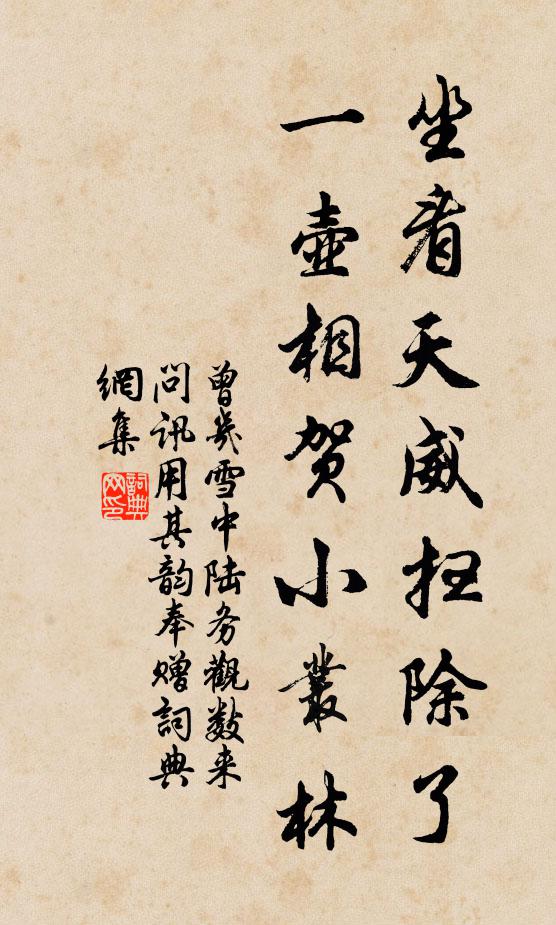 坐看天威扫除了
一壶相贺小叢林
曾幾雪中陆务觀数来
问讯用其韵奉赠詞典
網集
詞典
网印